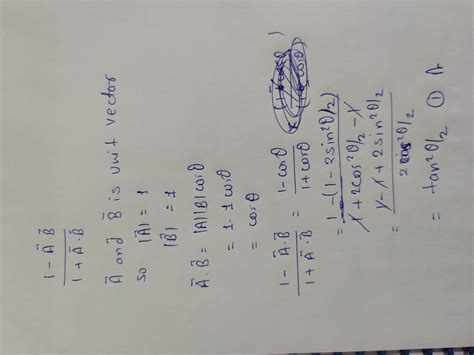 1 - Ā·B̄ / 1 + Ā·B̄
Ā and B̄ is unit vector
so |Ā| = 1
|B̄| = 1
Ā·B̄ = |A||B|cosθ
= 1·1 cosθ
= cosθ
1 - Ā·B̄ / 1 + Ā·B̄ = 1 - cosθ / 1 + cosθ
= 1 - (1 - 2sin²θ/2) / 1 + 2cos²θ/2 - 1
= 1 - 1 + 2sin²θ/2 / 2cos²θ/2
= tan²θ/2 ①